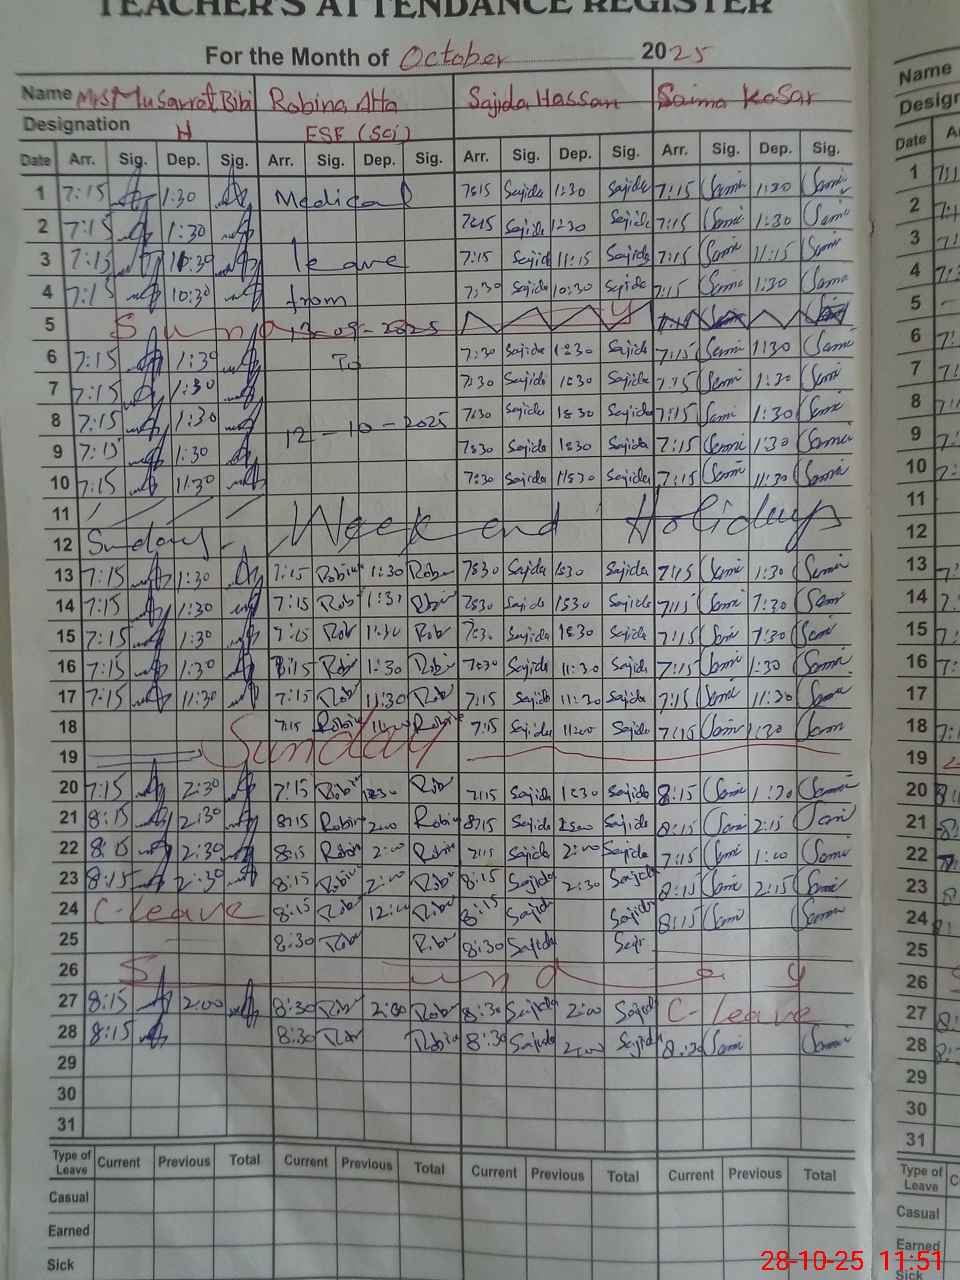 TEACHER'S ATTENDANCE REGISTER
For the Month of October 2025
Name Mrs Musarrat Bibi Robina Atta Sajida Hassan Saima Kosar Name
Designation H ESE (Sci)
Date Arr. Sig. Dep. Sig. Arr. Sig. Dep. Sig. Arr. Sig. Dep. Sig. Arr. Sig. Dep. Sig. Date
1 7:15 1:30 Medical 7:15 Sajida 1:30 Sajida 7:15 Sami 1:30 Sami 1
2 7:15 1:30 7:15 Sajida 1:30 Sajida 7:15 Sami 1:30 Sami 2
3 7:15 10:30 leave 7:15 Sajida 11:15 Sajida 7:15 Sami 11:15 Sami 3
4 7:15 10:30 from 7:30 Sajida 10:30 Sajida 7:15 Sami 1:30 Sami 4
5 Sunday 13-09-2025 5
6 7:15 1:30 To 7:30 Sajida 1:30 Sajida 7:15 Sami 1:30 Sami 6
7 7:15 1:30 7:30 Sajida 1:30 Sajida 7:15 Sami 1:30 Sami 7
8 7:15 1:30 12-10-2025 7:30 Sajida 1:30 Sajida 7:15 Sami 1:30 Sami 8
9 7:15 1:30 7:30 Sajida 1:30 Sajida 7:15 Sami 1:30 Sami 9
10 7:15 11:30 7:30 Sajida 11:30 Sajida 7:15 Sami 11:30 Sami 10
11 Week end Holidays 11
12 Sunday 12
13 7:15 1:30 7:15 Robin 1:30 Rob 7:30 Sajida 1:30 Sajida 7:15 Sami 1:30 Sami 13
14 7:15 1:30 7:15 Rob 1:31 Robi 7:30 Sajida 1:30 Sajida 7:15 Sami 1:30 Sami 14
15 7:15 1:30 7:15 Rob 1:30 Rob 7:30 Sajida 1:30 Sajida 7:15 Sami 1:30 Sami 15
16 7:15 1:30 8:15 Robi 1:30 Robi 7:30 Sajida 11:30 Sajida 7:15 Sami 1:30 Sami 16
17 7:15 11:30 7:15 Rob 11:30 Rob 7:15 Sajida 11:30 Sajida 7:15 Sami 11:30 Sami 17
18 7:15 Robin 11:00 Robin 7:15 Sajida 11:00 Sajida 7:15 Sami 1:30 Sami 18
19 Sunday 19
20 7:15 2:30 7:15 Robi 1:30 Rob 7:15 Sajida 1:30 Sajida 8:15 Sami 1:30 Sami 20
21 8:15 2:30 8:15 Robin 2:00 Robin 8:15 Sajida 2:00 Sajida 8:15 Sami 2:15 Sami 21
22 8:15 2:30 8:15 Robin 2:00 Robin 7:15 Sajida 2:00 Sajida 7:15 Sami 1:00 Sami 22
23 8:15 2:30 8:15 Robin 2:00 Rob 8:15 Sajida 2:30 Sajida 8:15 Sami 2:15 Sami 23
24 C-leave 8:15 Rob 12:00 Robi 8:15 Sajida Sajida 8:15 Sami Sami 24
25 8:30 Rob Robi 8:30 Sajida 25
26 Sunday 26
27 8:15 2:00 8:30 Rob 2:00 Rob 8:30 Sajida 2:00 Sajida C-leave 27
28 8:15 8:30 Rob Robin 8:30 Sajida 2:00 Sajida 8:30 Sami Sami 28
29 29
30 30
31 31
Type of Leave Current Previous Total Current Previous Total Current Previous Total Current Previous Total Type of Leave
Casual Casual
Earned Earned
Sick Sick
28-10-25 11:51